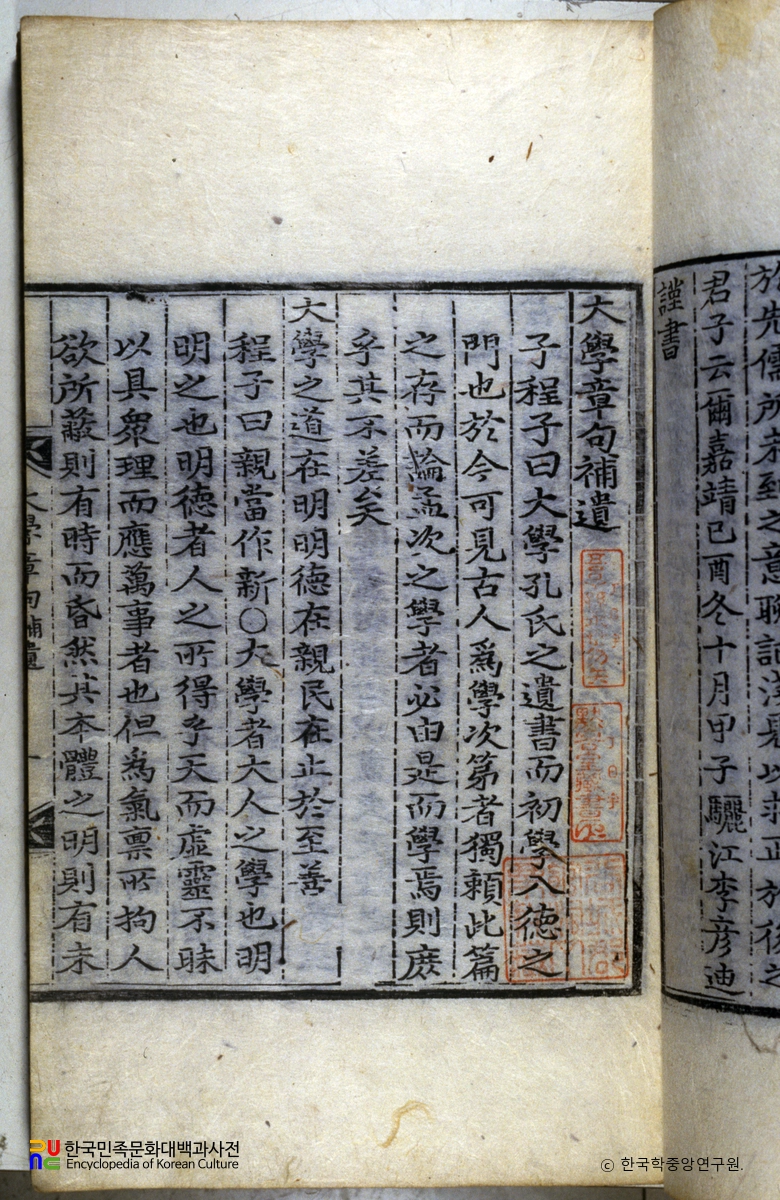 於先儒所未到之意聊記淺見以求正於後之
君子云爾嘉靖己酉冬十月甲子驪江李彦迪
謹書
大學章句補遺
子程子曰大學孔氏之遺書而初學入德之
門也於今可見古人爲學次第者獨賴此篇
之存而論孟次之學者必由是而學焉則庶
乎其不差矣
大學之道在明明德在親民在止於至善
程子曰親當作新○大學者大人之學也明
明之也明德者人之所得乎天而虛靈不昧
以具衆理而應萬事者也但爲氣稟所拘人
欲所蔽則有時而昏然其本體之明則有未
大學章句補遺 一
한국민족문화대백과사전
Encyclopedia of Korean Culture
ⓒ 한국학중앙연구원.